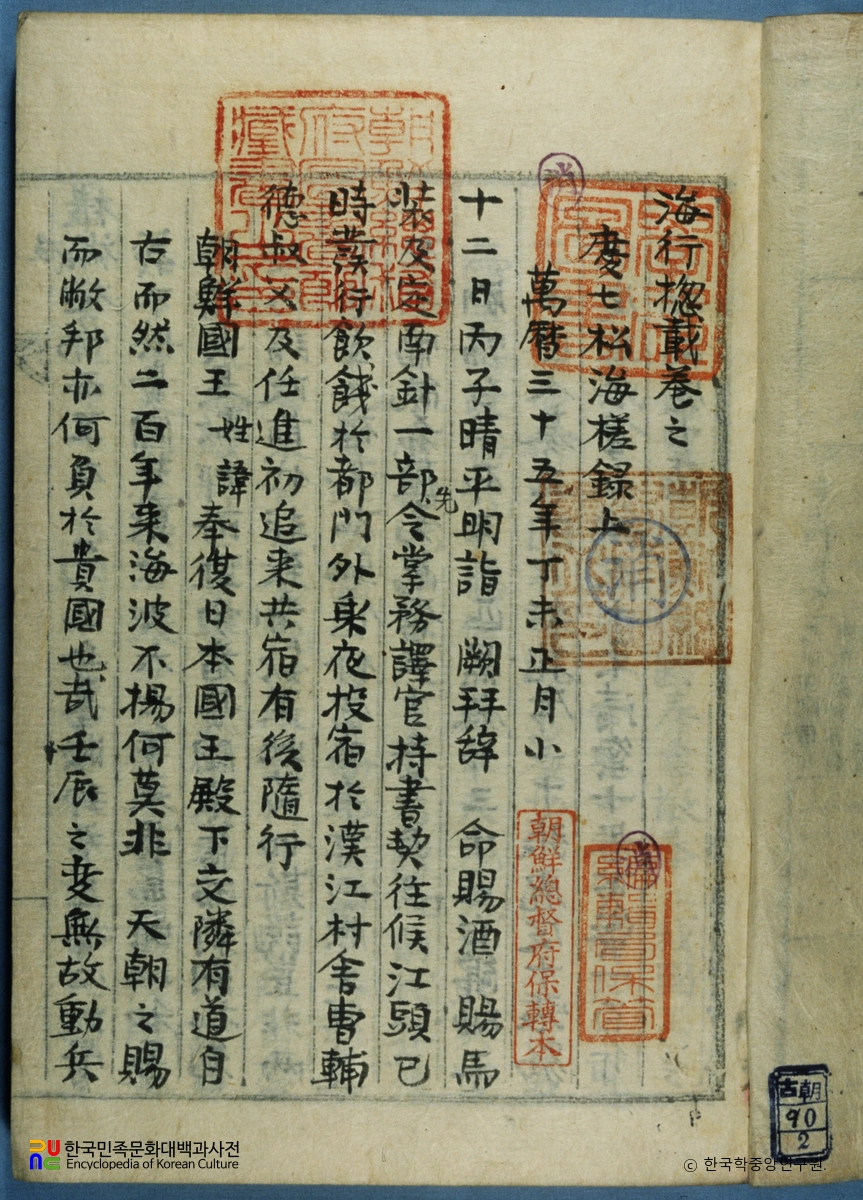 海行揔載卷之
慶七松海槎録上
萬曆三十五年丁未正月小
十二日丙子晴平明詣 闕拜辞 命賜酒 賜馬
装及定南針一部先令掌務譯官持書契往候江頭已
時發行飲餞於都門外乗夜投宿於漢江村舍曹輔
德叔父及任進初追来共宿有後隨行
朝鮮國王 姓諱 奉復日本國王殿下交隣有道自
古而然二百年来海波不揚何莫非 天朝之賜
而敝邦亦何負於貴國也哉壬辰之变無故動兵
朝鮮總督府保轉本
朝鮮總督府圖書館藏書之印
古朝
90
2
한국민족문화대백과사전
Encyclopedia of Korean Culture
ⓒ 한국학중앙연구원.